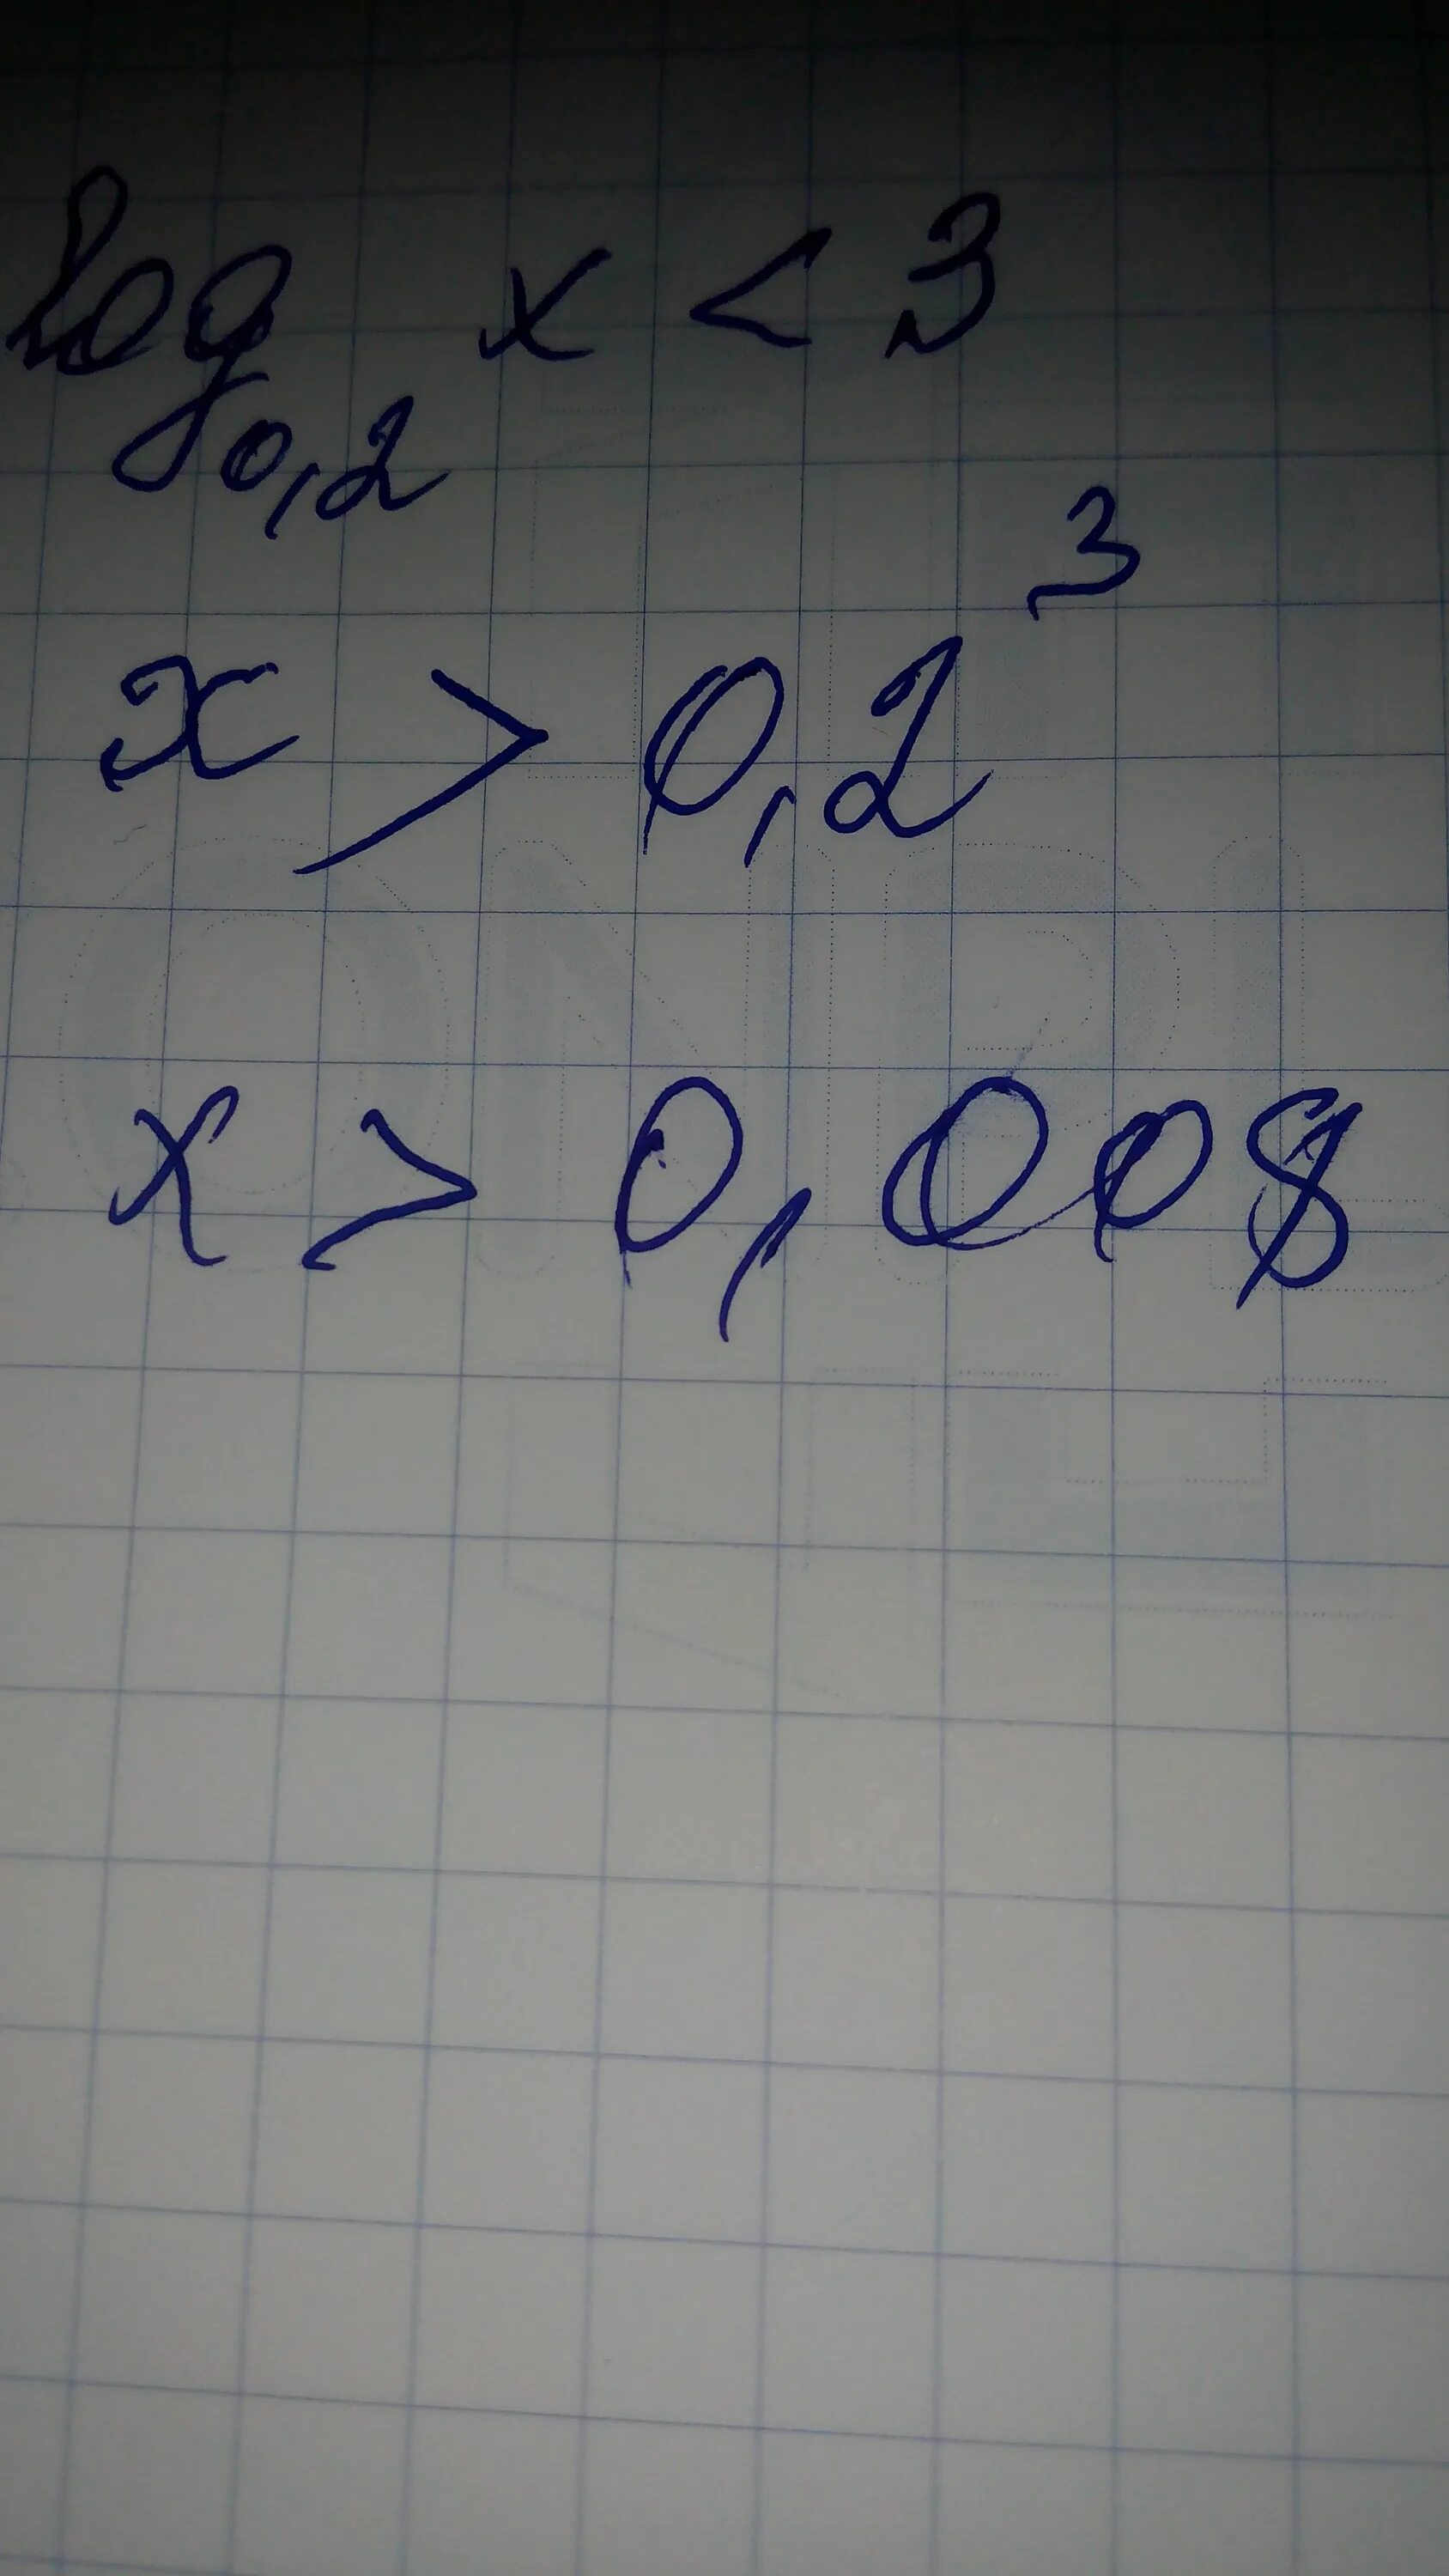 log₀,₂ x < 3
x > 0,2³
x > 0,008